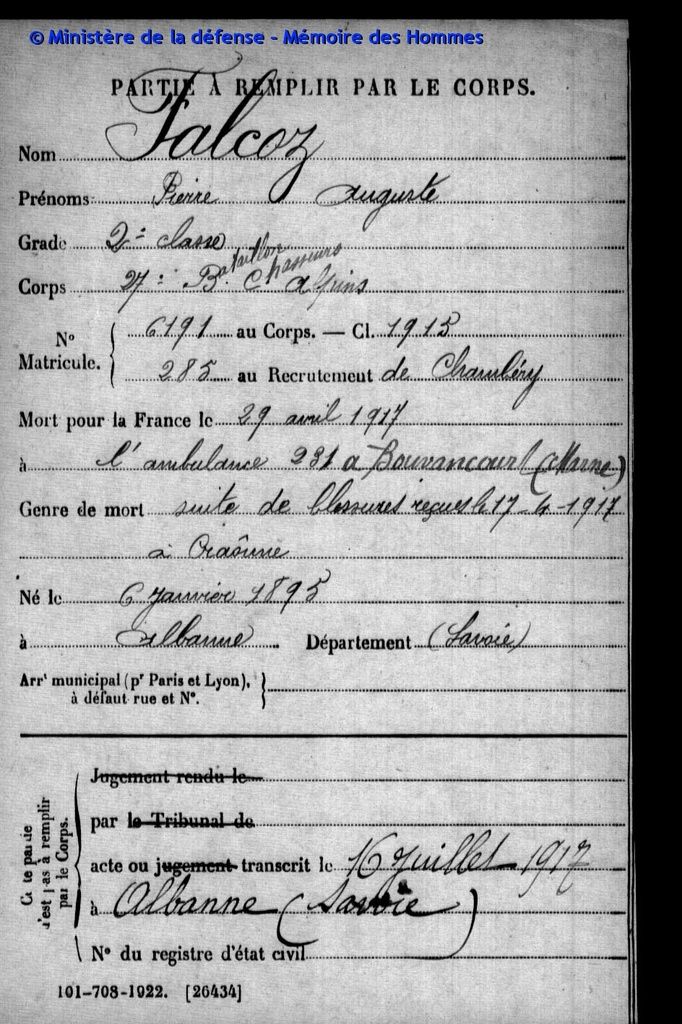 © Ministère de la défense - Mémoire des Hommes
PARTIE À REMPLIR PAR LE CORPS.
Nom Falcoz
Prénoms Pierre Auguste
Grade 2e classe
Corps 27e Bataillon Chasseurs alpins
N° Matricule. { 6191 au Corps. — Cl. 1915
285 au Recrutement de Chambéry
Mort pour la France le 29 avril 1917
à l'ambulance 231 a Bouvancourt (Marne)
Genre de mort suite de blessures reçues le 17-4-1917
à Craonne
Né le 6 janvier 1895
à Albanne Département (Savoie)
Arrt municipal (pr Paris et Lyon),
à défaut rue et N°. }
Cette partie n'est pas à remplir par le Corps.
Jugement rendu le
par le Tribunal de
acte ou jugement transcrit le 16 Juillet 1917
à Albanne (Savoie)
N° du registre d'état civil
101-708-1922. [26434]